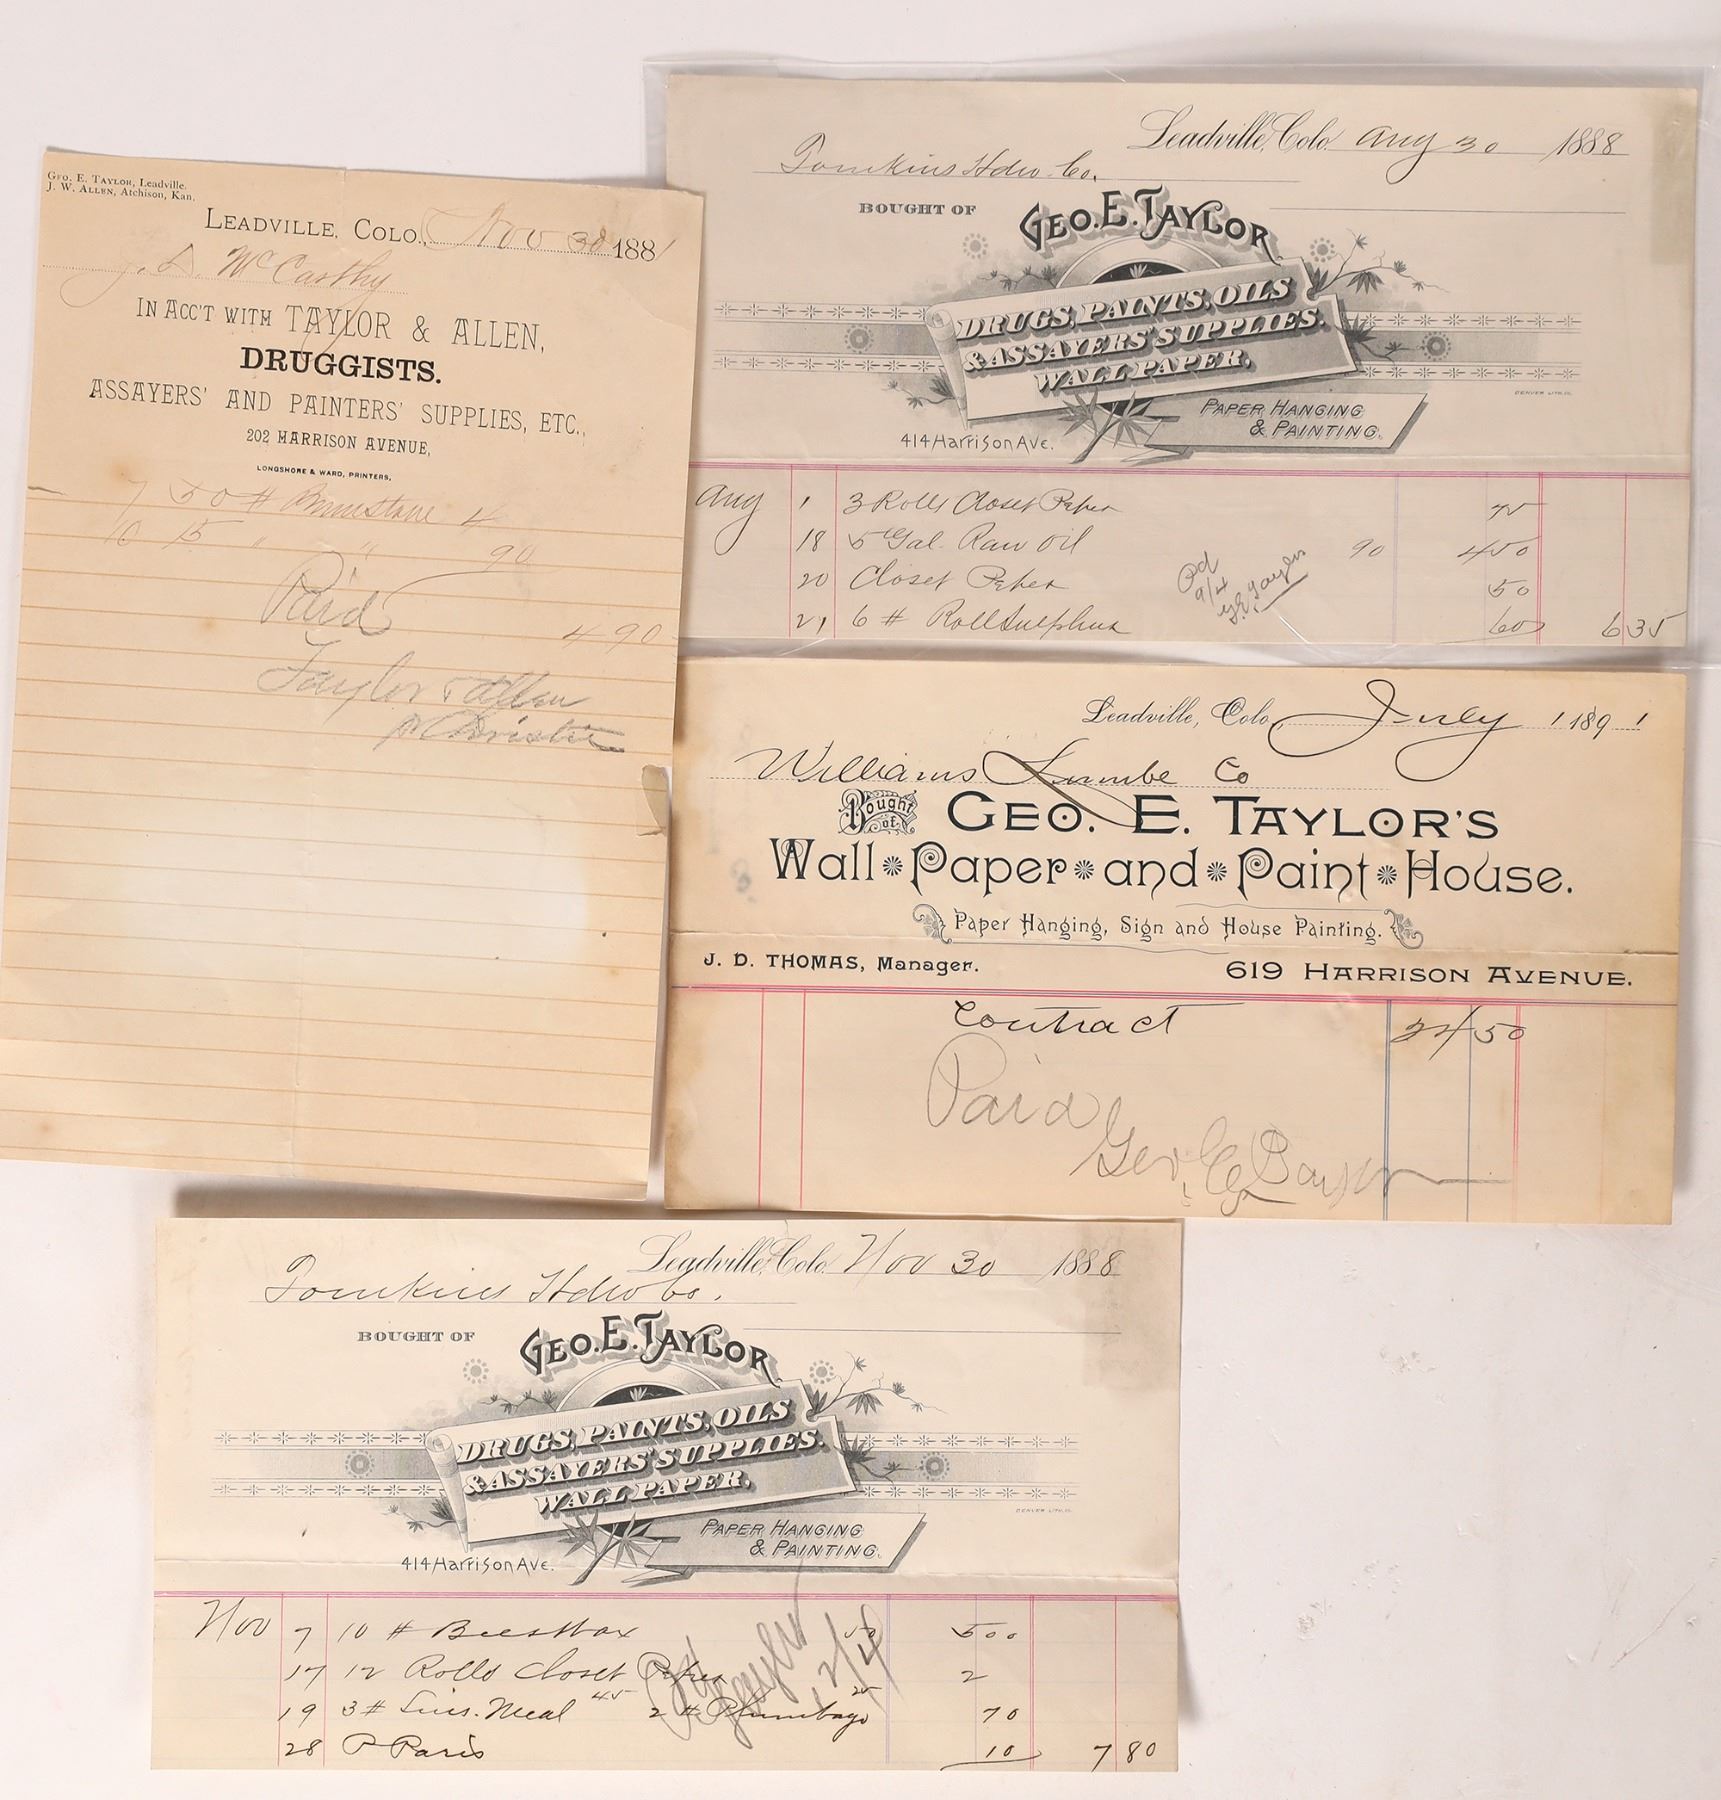 Geo. E. Taylor, Leadville.
J. W. Allen, Atchison, Kan.
Leadville, Colo., Nov 30 1881
J. D. McCarthy
In Acc't with Taylor & Allen,
DRUGGISTS.
Assayers' and Painters' Supplies, Etc.,
202 Harrison Avenue,
LONGSHORE & WARD, PRINTERS,
7 50 # Brimstone 4
10 15 " " 90
Paid
4 90
Taylor & Allen
Christie
Leadville, Colo. Aug 30 1888
Tomkins Hdw. Co.
BOUGHT OF GEO. E. TAYLOR
DRUGS, PAINTS, OILS
& ASSAYERS' SUPPLIES.
WALL PAPER,
DENVER LITH. CO.
PAPER HANGING
& PAINTING.
414 Harrison Ave.
Aug 1 3 Rolls Closet Paper 75
18 5 Gal. Raw Oil 90 4 50
20 Closet Paper 50
21 6 # Roll Sulphur 60 6 35
Pd
9/4
G. E. Taylor
Leadville, Colo, July 1 1891
Williams Lumbe Co
Bought of Geo. E. Taylor's
Wall Paper and Paint House.
Paper Hanging, Sign and House Painting.
J. D. THOMAS, Manager. 619 HARRISON AVENUE.
Contract 24 50
Paid
Geo. E. Taylor
Leadville, Colo. Nov 30 1888
Tomkins Hdw Co.
BOUGHT OF GEO. E. TAYLOR
DRUGS, PAINTS, OILS
& ASSAYERS' SUPPLIES.
WALL PAPER,
DENVER LITH. CO.
PAPER HANGING
& PAINTING.
414 Harrison Ave.
Nov 7 10 # Beeswax 50 5 00
17 12 Rolls Closet Paper 2
19 3 # Lins. Meal 45 2 # Plumbago 25 70
28 P Paris 10 7 80
Pd
Taylor
12/4